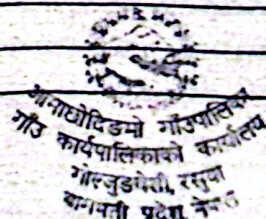 आमाछोदिङमो गाँउपालिका
गाँउ कार्यपालिकाको कार्यालय
गोल्जुङबेशी, रसुवा
बागमती प्रदेश, नेपाल